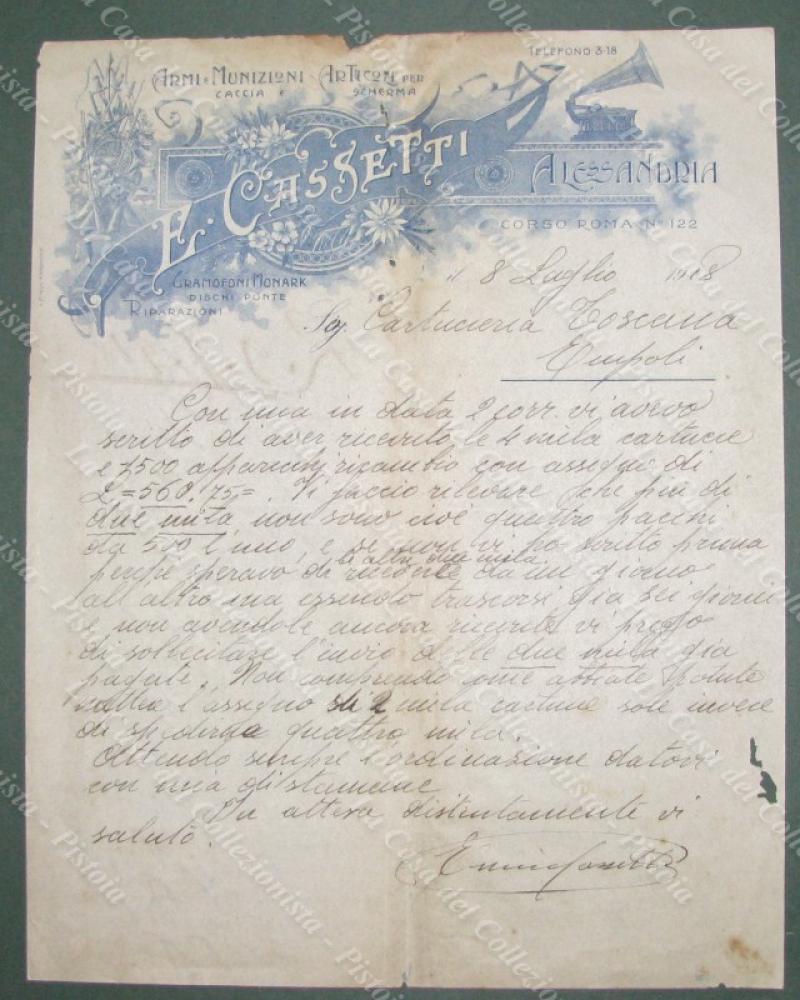 TELEFONO 3-18
ARMI E MUNIZIONI ARTICOLI PER
CACCIA E SCHERMA
E. CASSETTI
ALESSANDRIA
CORSO ROMA N° 122
GRAMOFONI MONARK
DISCHI PUNTE
RIPARAZIONI
il 8 Luglio 19 8
Sig. Cartucceria Toscana
Empoli
Con mia in data 2 corr. vi avevo
scritto di aver ricevuto le 4 mila cartucce
e 7500 apparecchi ricambio con assegno di
L=560.75=. Vi faccio rilevare che più di
due mila non sono cioè quattro pacchi
da 500 l'uno, e se non vi ho scritto prima
perche speravo di ricevere le altre due mila da un giorno
all altro ma essendo trascorsi già sei giorni
e non avendole ancora ricevute vi prego
di sollecitare l'invio delle due mila già
pagate. Non comprendo come abbiate potute
l'assegno su 2 mila cartucce sole invece
di spedirne quattro mila.
Attendo sempre l'ordinazione datovi
con mia di stamane
In attesa distintamente vi
saluto.
Cassetti
La Casa del Collezionista - Pistoia